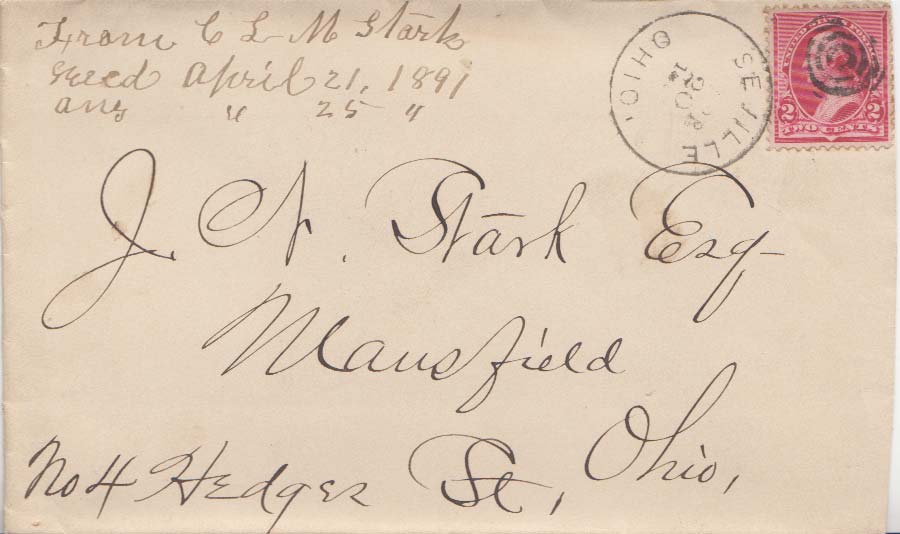 From C L M Stark
Recd April 21, 1891
ans " 25 "
SEVILLE
OHIO.
20
UNITED STATES POSTAGE
2 2
TWO CENTS
J. N. Stark Esq
Mansfield
Ohio,
No 4 Hedges St,